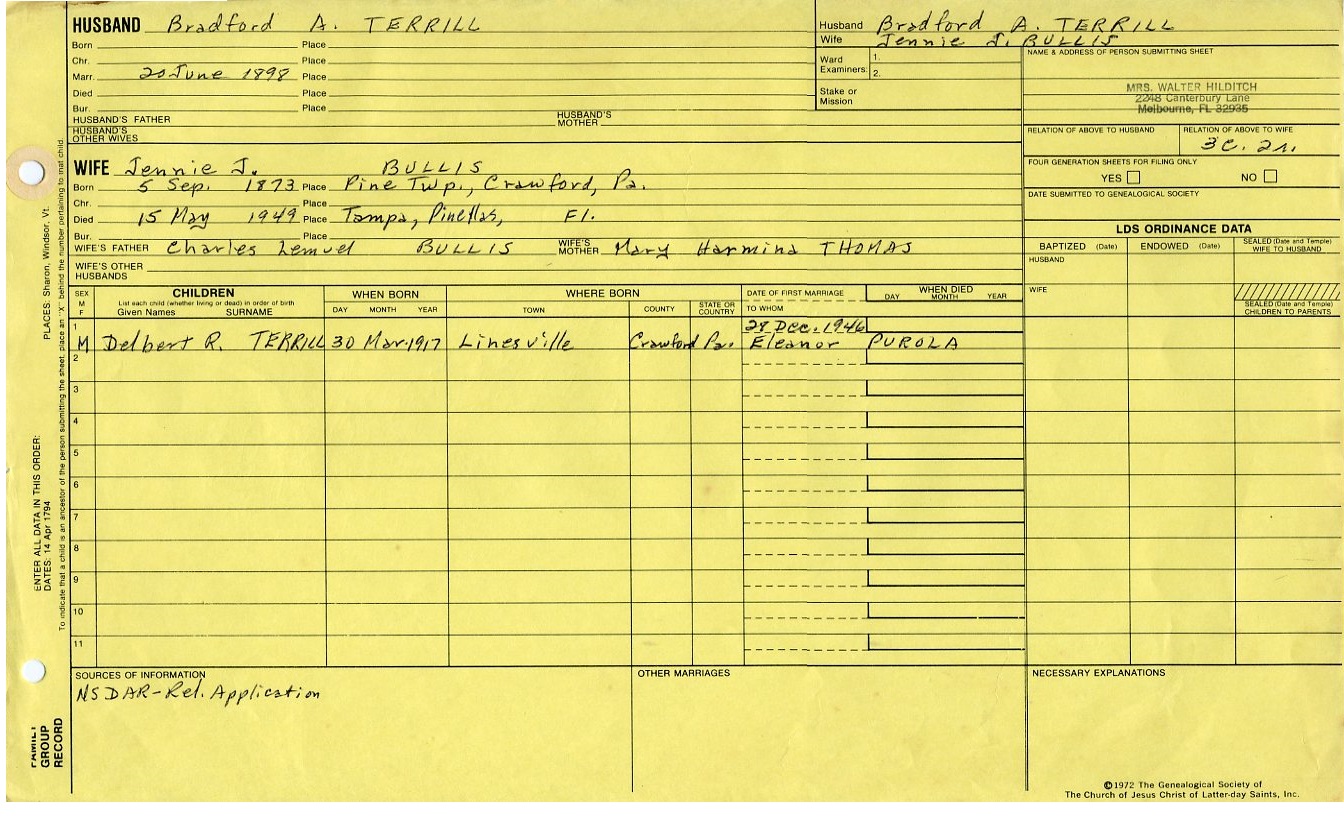 HUSBAND Bradford A. TERRILL
Born Place
Chr. Place
Marr. 20 June 1898 Place
Died Place
Bur. Place
HUSBAND'S FATHER HUSBAND'S MOTHER
HUSBAND'S OTHER WIVES
Husband Bradford A. TERRILL
Wife Jennie J. BULLIS
Ward 1.
Examiners: 2.
Stake or Mission
NAME & ADDRESS OF PERSON SUBMITTING SHEET
MRS. WALTER HILDITCH
2248 Canterbury Lane
Melbourne, FL 32935
RELATION OF ABOVE TO HUSBAND RELATION OF ABOVE TO WIFE
3C. 2r.
FOUR GENERATION SHEETS FOR FILING ONLY
YES NO
DATE SUBMITTED TO GENEALOGICAL SOCIETY
WIFE Jennie J. BULLIS
Born 5 Sep. 1873 Place Pine Twp., Crawford, Pa.
Chr. Place
Died 15 May 1949 Place Tampa, Pinellas, Fl.
Bur. Place
WIFE'S FATHER Charles Lemuel BULLIS WIFE'S MOTHER Mary Harmina THOMAS
WIFE'S OTHER HUSBANDS
LDS ORDINANCE DATA
BAPTIZED (Date) ENDOWED (Date) SEALED (Date and Temple) WIFE TO HUSBAND
HUSBAND
WIFE
SEALED (Date and Temple) CHILDREN TO PARENTS
SEX M F
CHILDREN
List each child (whether living or dead) in order of birth
Given Names SURNAME
WHEN BORN
DAY MONTH YEAR
WHERE BORN
TOWN COUNTY STATE OR COUNTRY
DATE OF FIRST MARRIAGE
TO WHOM
WHEN DIED
DAY MONTH YEAR
1 28 Dec. 1946
M Delbert R. TERRILL 30 Mar. 1917 Linesville Crawford Pa. Eleanor PUROLA
2
3
4
5
6
7
8
9
10
11
SOURCES OF INFORMATION
NSDAR-Rel. Application
OTHER MARRIAGES
NECESSARY EXPLANATIONS
©1972 The Genealogical Society of
The Church of Jesus Christ of Latter-day Saints, Inc.
FAMILY GROUP RECORD
ENTER ALL DATA IN THIS ORDER:
DATES: 14 Apr 1794
PLACES: Sharon, Windsor, Vt.
To indicate that a child is an ancestor of the person submitting the sheet, place an "X" behind the number pertaining to that child.